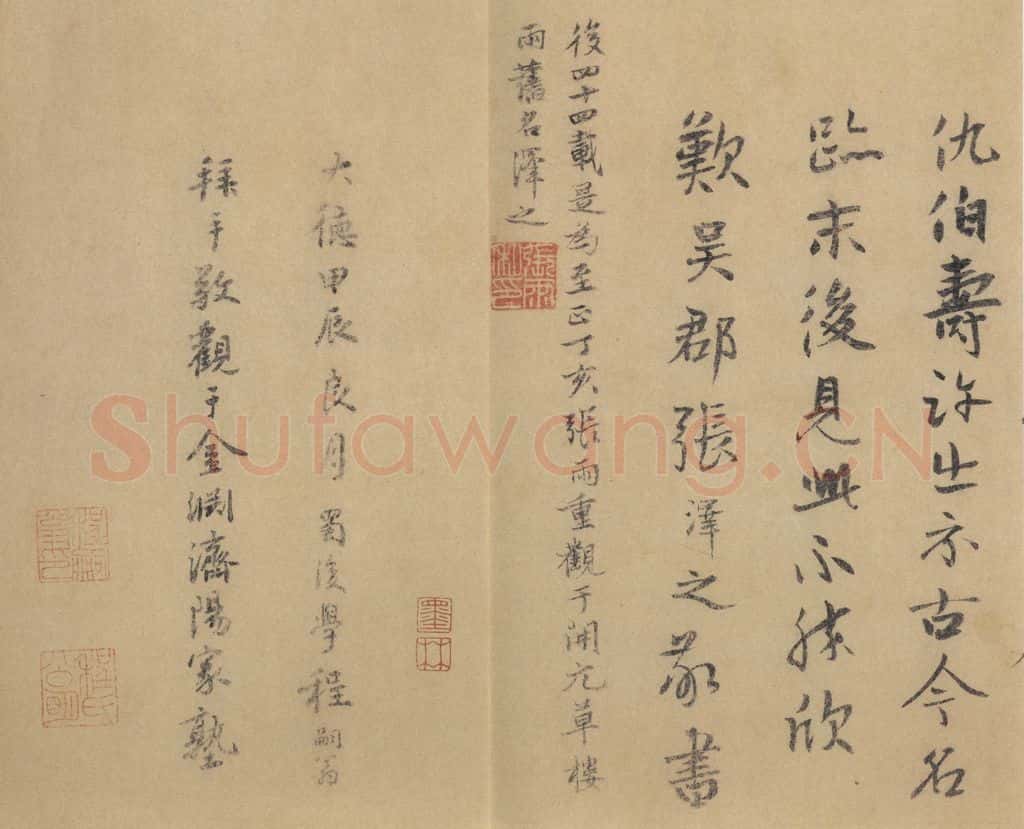 仇伯壽許出示古今名
跡末後見此不勝欣
歎吴郡張澤之敬書
後四十四載是為至正丁亥張雨重觀于開元草樓
雨舊名澤之
張雨私印
墨林
大德甲辰良月蜀後學程嗣翁
拜手敬觀于金淵濟陽家塾
Shufawang.CN